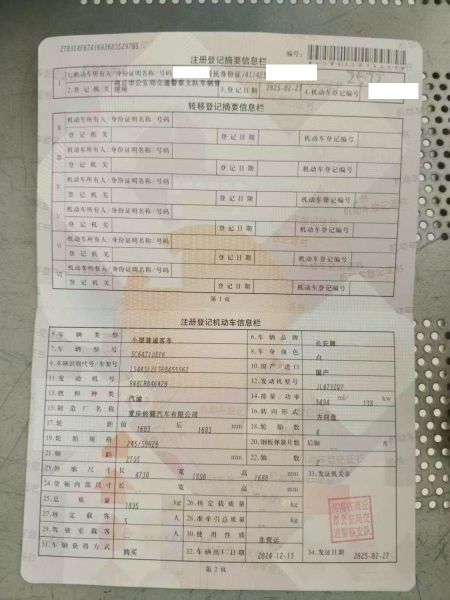 注册登记摘要信息栏
编号:
1.机动车所有人/身份证明名称/号码 居民身份证/
2.登记机关 商丘市公安局交通警察支队车辆管理所 3.登记日期 2025-02-27 4.机动车登记编号
转移登记摘要信息栏
Ⅱ 机动车所有人/身份证明名称/号码
登记机关 登记日期 机动车登记编号
Ⅲ 机动车所有人/身份证明名称/号码
登记机关 登记日期 机动车登记编号
Ⅳ 机动车所有人/身份证明名称/号码
登记机关 登记日期 机动车登记编号
Ⅴ 机动车所有人/身份证明名称/号码
登记机关 登记日期 机动车登记编号
Ⅵ 机动车所有人/身份证明名称/号码
登记机关 登记日期 机动车登记编号
Ⅶ 机动车所有人/身份证明名称/号码
登记机关 登记日期 机动车登记编号
第1页
注册登记机动车信息栏
5.车辆类型 小型普通客车 6.车辆品牌 长安牌
7.车辆型号 8.车身颜色 白
9.车辆识别代号/车架号 10.国产/进口 国产
11.发动机号 12.发动机型号 JL473ZQ7
13.燃料种类 汽油 14.排量/功率 1494 ml/ 138 kw
15.制造厂名称 重庆铃耀汽车有限公司 16.转向形式 方向盘
17.轮距 前 1603 后 1603 mm 18.轮胎数 4
19.轮胎规格 20.钢板弹簧片数 后轴
21.轴距 2795 mm 22.轴数 2
23.外廓尺寸 长 4730 宽 高 1680 mm 33.发证机关章
24.货厢内部尺寸 长 宽 高 mm
25.总质量 1895 kg 26.核定载质量 kg
27.核定载客 5 人 28.准牵引总质量 kg
29.驾驶室载客 人 30.使用性质 非营运
31.车辆获得方式 购买 32.车辆出厂日期 2024-12-13 34.发证日期 2025-02-27
河南省商丘
市公安局交
通警察支队
第2页